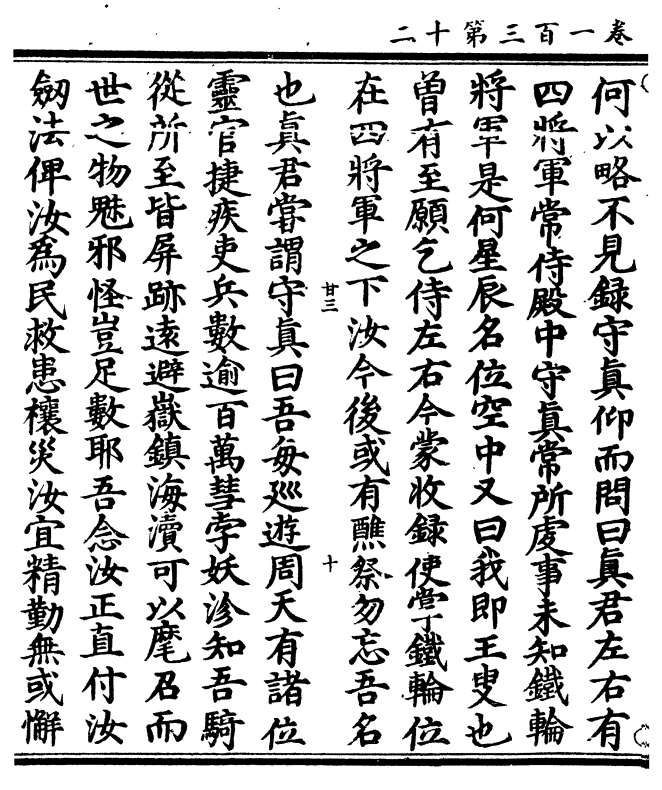 卷一百三第十二
何以略不見録守真仰而問曰真君左右有
四將軍常侍殿中守真常所虔事未知鐵輪
將軍是何星辰名位空中又曰我即王叟也
曾有至願乞侍左右今蒙收録使掌鐵輪位
在四將軍之下汝今後或有醮祭勿忘吾名
廿三 十
也真君嘗謂守真曰吾每廵遊周天有諸位
靈官捷疾吏兵數逾百萬彗孛妖沴知吾騎
從所至皆屏跡遠避嶽鎮海瀆可以麾召而
世之物魅邪怪豈足數耶吾念汝正直付汝
劒法俾汝為民救患禳災汝宜精勤無或懈